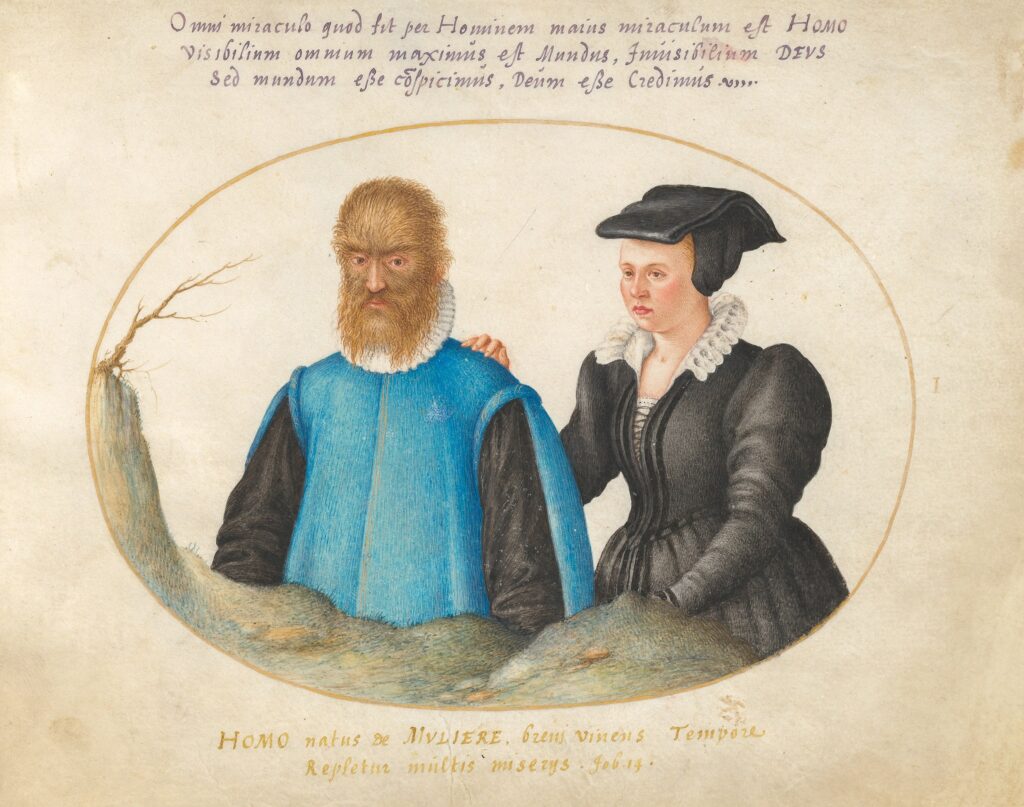 Omni miraculo quod fit per Hominem maius miraculum est HOMO
Visibilium omnium maximus est Mundus, Invisibilium DEVS
Sed mundum esse cōspicimus, Deum esse Credimus
I
HOMO natus de MVLIERE, breui viuens Tempore
Repletur multis miserijs. Job 14.